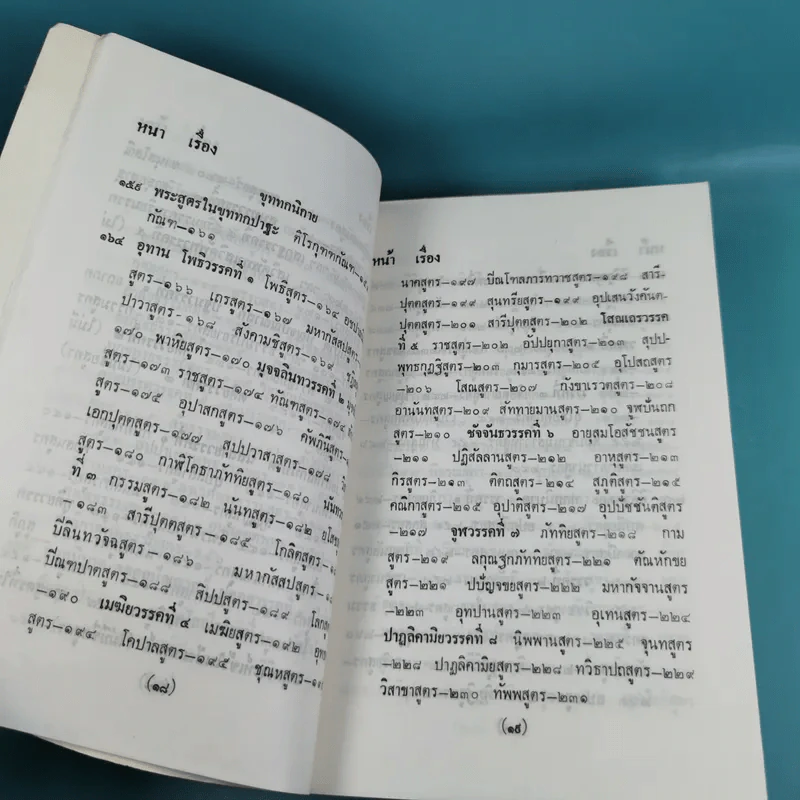 หนา เรื่อง
ขุททกนิกาย
๑๕๙ พระสูตรในขุททกปาฐะ ติโรกุฑฑกัณฑ–๑๕๙
กัณฑ–๑๖๑
๑๖๔ อุทาน โพธิวรรคที่ ๑ โพธิสูตร–๑๖๔
สูตร–๑๖๖ เถรสูตร–๑๖๗ มหากัสสปสูตร
ปาวาสูตร–๑๖๘ สังคามชิสูตร–๑๖๙
๑๗๐ พาหิยสูตร–๑๗๐ มุจจลินทวรรคที่ ๒
สูตร–๑๗๓ ราชสูตร–๑๗๔ ทัณฑสูตร–๑๗๔
สูตร–๑๗๕ อุปาสกสูตร–๑๗๖ คัพภินีสูตร
เอกปุตตสูตร–๑๗๗ สุปปวาสาสูตร–๑๗๘
สูตร–๑๘๐ กาฬิโคธาภัททิยสูตร–๑๘๐
ที่ ๓ กรรมสูตร–๑๘๒ นันทสูตร–๑๘๒
–๑๘๓ สารีปุตตสูตร–๑๘๕ โกลิตสูตร
ปีลินทวัจฉสูตร–๑๘๖ มหากัสสปสูตร
บีณฑปาตสูตร–๑๘๘ สิปปสูตร–๑๘๙
–๑๙๐ เมฆิยวรรคที่ ๔ เมฆิยสูตร–๑๙๒
สูตร–๑๙๔ โคปาลสูตร–๑๙๕ ชุณหสูตร
(๑๘)
หน้า เรื่อง
นาคสูตร–๑๙๗ บีณโฑลภารทวาชสูตร–๑๙๘ สารี-
ปุตตสูตร–๑๙๙ สุนทรียสูตร–๑๙๙ อุปเสนวังคันต-
ปุตตสูตร–๒๐๑ สารีปุตตสูตร–๒๐๒ โสณเถรวรรค
ที่ ๕ ราชสูตร–๒๐๒ อัปปยุกาสูตร–๒๐๓ สุปป-
พุทธกุฏฐิสูตร–๒๐๓ กุมารสูตร–๒๐๕ อุโปสถสูตร
–๒๐๖ โสณสูตร–๒๐๗ กังขาเรวตสูตร–๒๐๘
อานันทสูตร–๒๐๙ สัททายมานสูตร–๒๑๐ จูฬบันถก
สูตร–๒๑๐ ชัจจันธวรรคที่ ๖ อายุสมโอสัชชนสูตร
–๒๑๑ ปฏิสัลลานสูตร–๒๑๒ อาหุสูตร–๒๑๓
กิรสูตร–๒๑๓ ติตถสูตร–๒๑๔ สุภูติสูตร–๒๑๕
คณิกาสูตร–๒๑๕ อุปาติสูตร–๒๑๗ อุปปัชชันติสูตร
–๒๑๗ จูฬวรรคที่ ๗ ภัททิยสูตร–๒๑๘ กาม
สูตร–๒๑๙ ลกุณฐกภัททิยสูตร–๒๒๑ ตัณหักขย
สูตร–๒๒๑ ปปัญจขยสูตร–๒๒๒ มหากัจจานสูตร
–๒๒๓ อุทปานสูตร–๒๒๓ อุเทนสูตร–๒๒๔
ปาฏลิคามิยวรรคที่ ๘ นิพพานสูตร–๒๒๕ จุนทสูตร
–๒๒๘ ปาฏลิคามิยสูตร–๒๒๘ ทวิธาปถสูตร–๒๒๙
วิสาขาสูตร–๒๓๐ ทัพพสูตร–๒๓๑
(๑๙)